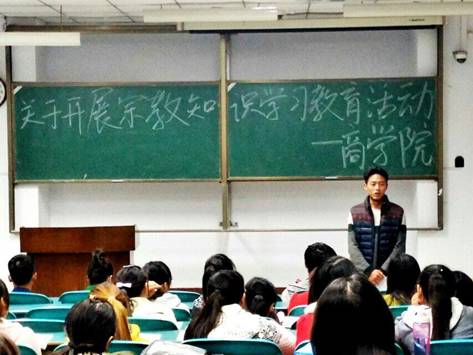 关于开展宗教知识学习教育活动
—商学院